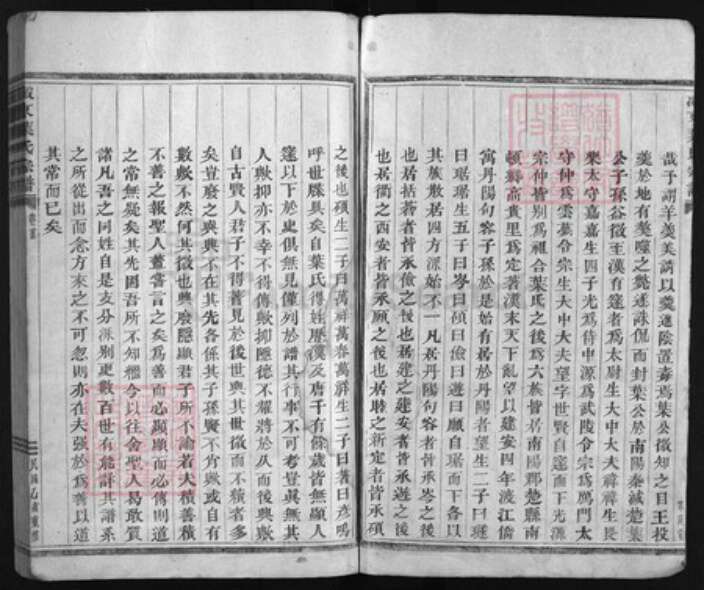 哉于謂羊羹美謂以羹進陰置毒焉葉公徵知之目王投
羹於地有羹噬之斃遂誅侃而封葉公於南陽秦滅楚葉
公子孫谷微至漢有達者爲太尉生大中大夫禕禕生長
樂太守嘉嘉生四子光爲侍中源爲武陵令宗爲鴈門太
守仲爲雲慕令宗生大中大夫望字世賢自達而下光源
宗仲皆別爲祖合葉氏之後爲六族皆居南陽郡楚縣南
頓鄉高貴里爲定著漢末天下亂望以建安四年渡江僑
寓丹陽句容子孫於是始有居於丹陽者望生二子曰瑳
曰琚琚生五子曰岑曰碩曰儉曰遊曰願自琚而下各以
其族散居四方源始不一凡居丹陽句容者皆承岑之後
也居括蒼者皆承儉之後也居建之建安者皆承遊之後
也居衢之西安者皆承願之後也居睦之新定者皆承碩
之後也碩生二子曰萬嵊萬春萬群生二子曰著曰彥鳴
呼世牒具矣自葉氏得姓歷漢及唐千有餘歲皆無顯人
達以下於史俱無見僅列於譜其行事不可考豈眞無其
人歟抑亦不幸不得傳歟抑隱德不耀將於从而後興歟
自古賢人君子不得著見於後世與其世微而不積者多
矣豈廢之與興不在其先各係其子孫賢不肖歟或自有
數歟不然何其微也興廢隱顯君子所不論若夫積善積
不善之報聖人蓋嘗言之矣爲善而必顯顯而必傳則道
之常無疑矣其先因吾所不知雖今以往舍聖人曷敢質
諸凡吾之同姓自是支分派別更數百世有能評其譜系
之所從出而念方來之不可忽則亦在夫强於爲善以道
其常而已矣
葉氏宗譜
卷首
民國乙亥重修